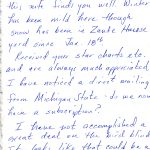 this note finds you well. Winter
has been mild here though
snow has been in
yard since Jan. 18th
Received your star charts etc.
and we always much appreciated
I have noticed a direct mailing
from Michigan State - do we now
have a subscription?
I have not accomplished a
great deal on the bird blind
it looks like that could be a